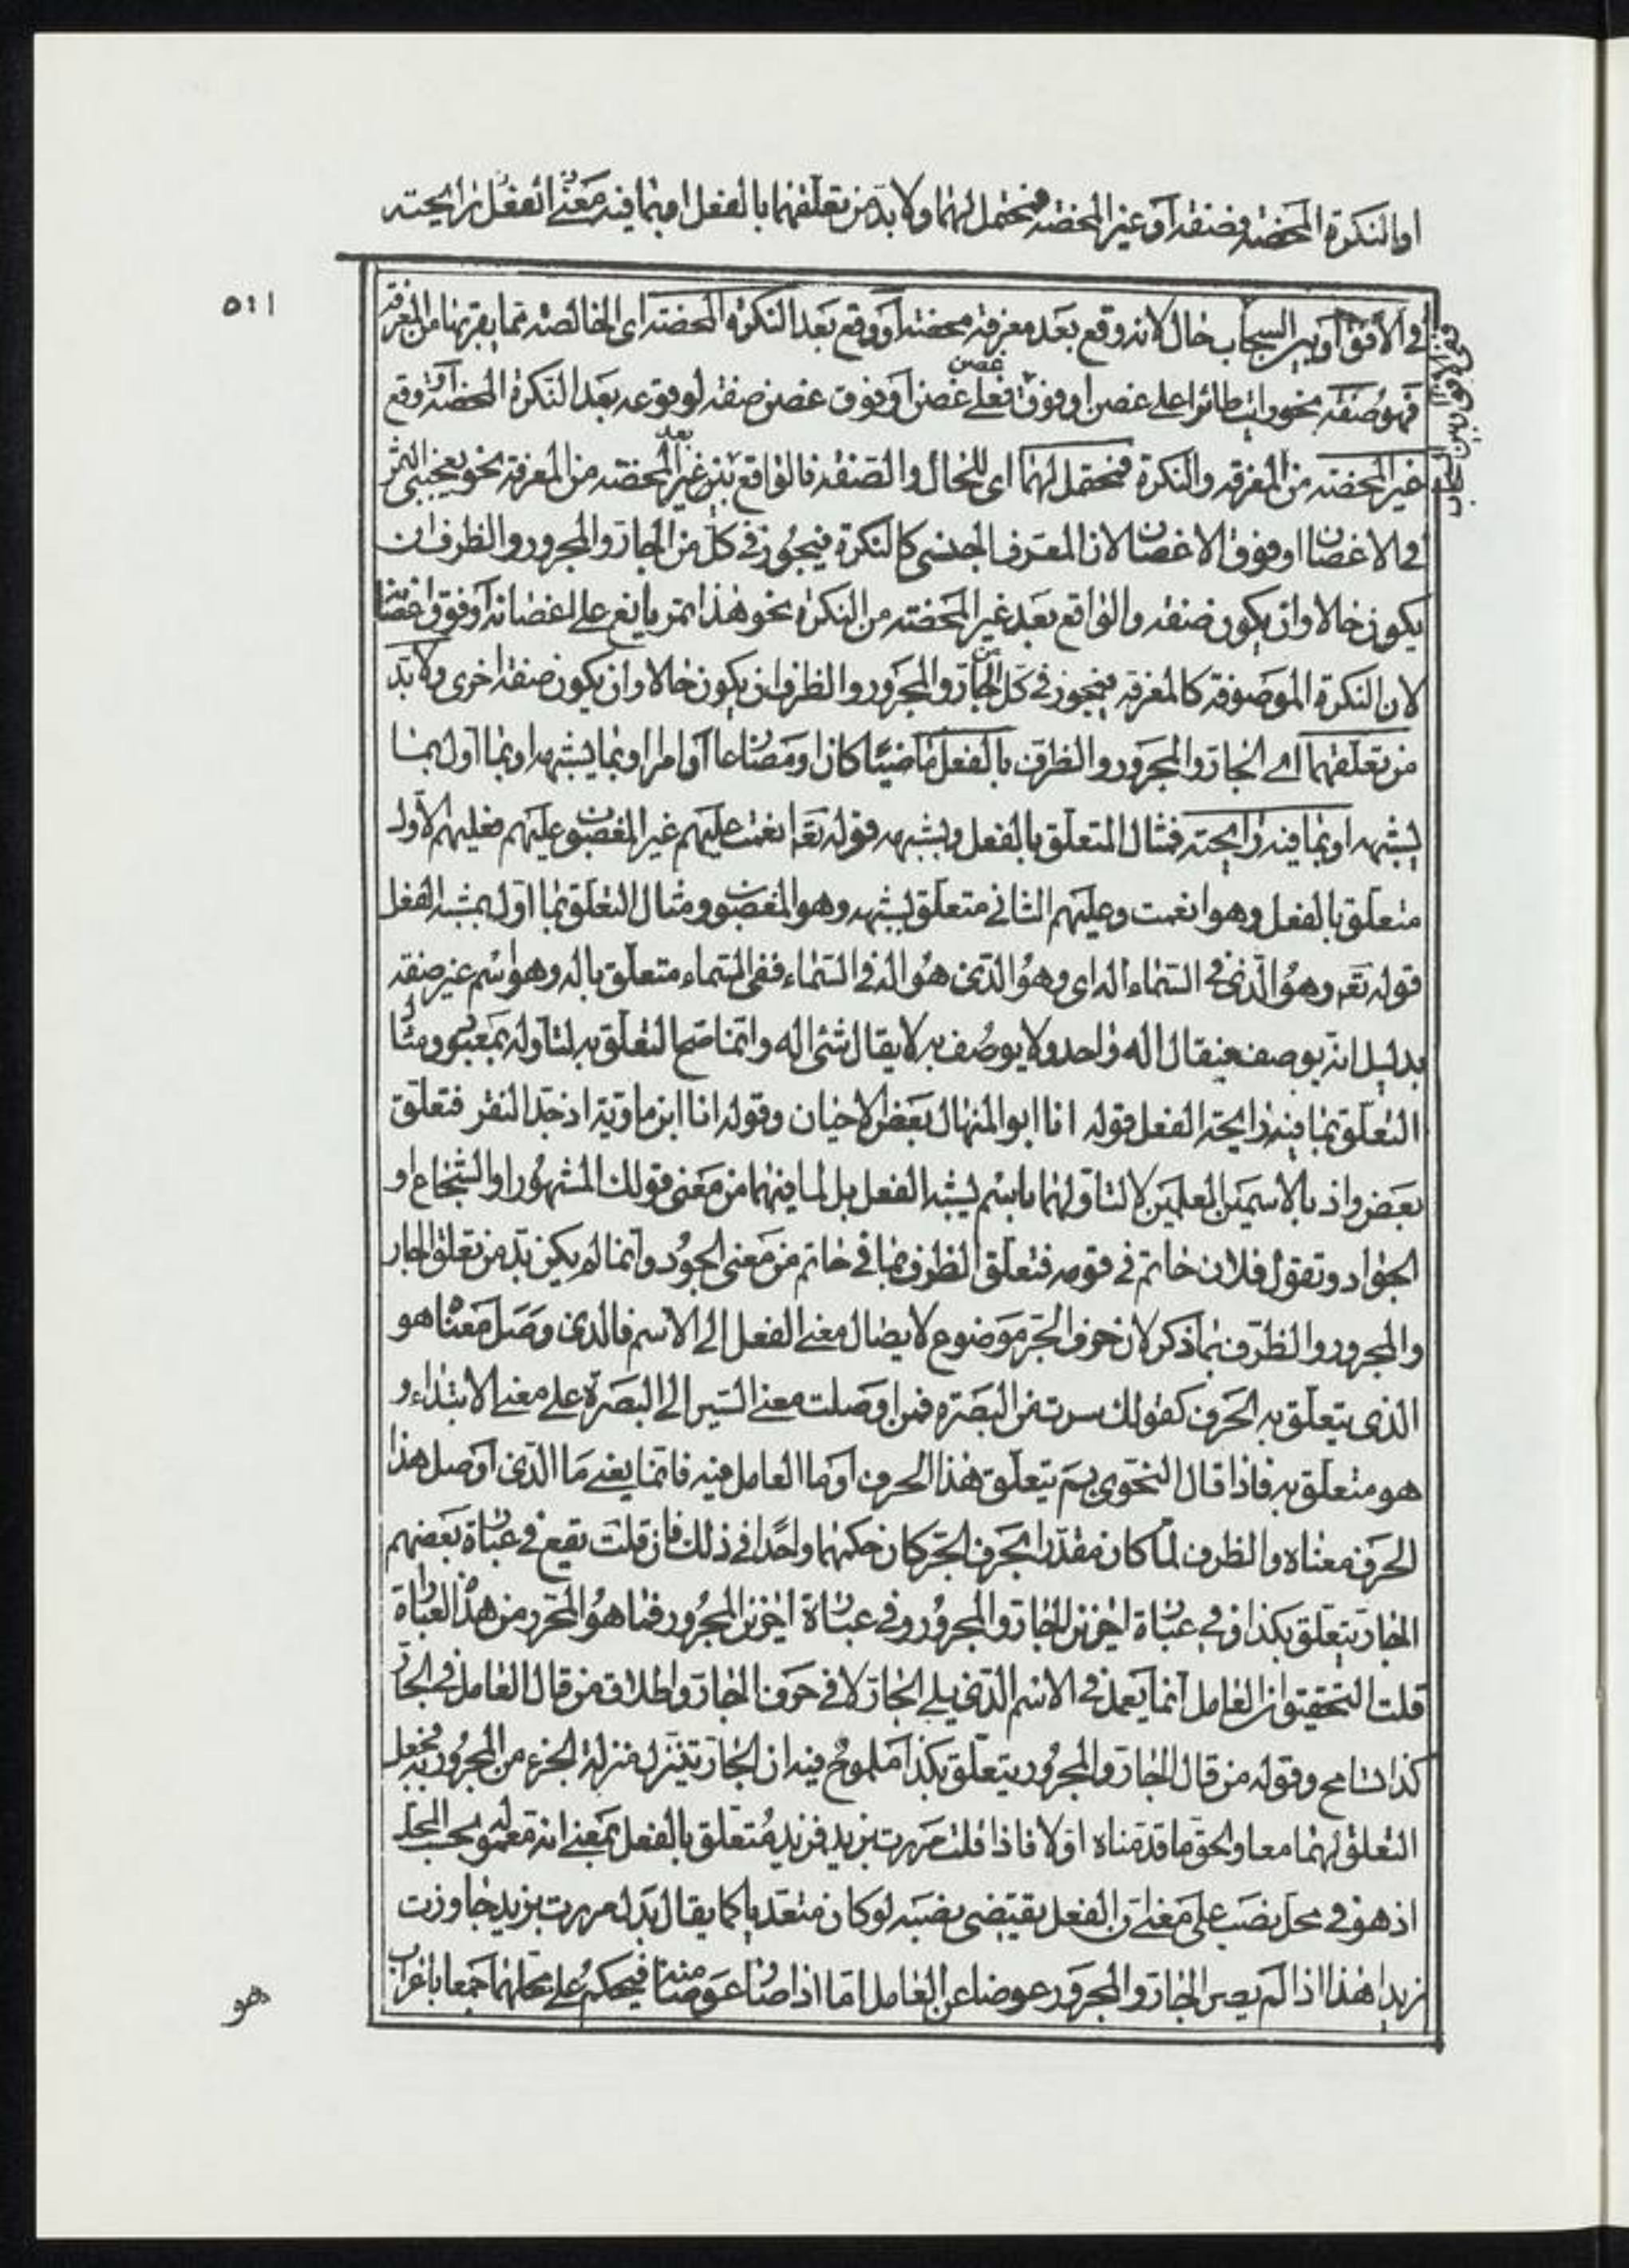 او النكرة المحضة فصفة او غير المحضة فمحتمل لهما ولا بد من تعلقهما بالفعل او بما فيه معنى الفعل رايحته
٥١١
في الافق او بين السحاب حال لانه وقع بعد معرفة محضة او وقع بعد النكرة المحضة اى الخالصة مما يقربها من المعرفة
فهو صفة نحو رايت طائرا على غصن او فوق غصن فعلى غصن او فوق غصن صفة لوقوعه بعد النكرة المحضة او وقع
غير المحضة من المعرفة والنكرة فمحتمل لهما اى للحال والصفة فالواقع بعد غير المحضة من المعرفة نحو يعجبنى الثمر
في الاغصان او فوق الاغصان لان المعرف الجنسى كالنكرة فيجوز في كل من الجار والمجرور والظرف ان
يكون حالا وان يكون صفة والواقع بعد غير المحضة من النكرة نحو هذا ثمر يانع على اغصانه او فوق اغصانه
لان النكرة الموصوفة كالمعرفة فيجوز في كل من الجار والمجرور والظرف ان يكون حالا وان يكون صفة اخرى ولا بد
من تعلقهما اى الجار والمجرور والظرف بالفعل ماضيا كان او مضارعا او امرا او بما يشبهه او بما اول بما
يشبهه او بما فيه رايحته فمثال المتعلق بالفعل وبشبهه قوله تعا انعمت عليهم غير المغضوب عليهم فعليهم الاول
متعلق بالفعل وهو انعمت وعليهم الثانى متعلق بشبهه وهو المغضوب ومثال التعلق بما اول بمشبه الفعل
قوله تعه وهو الذى في السماء اله اى وهو الذى هو اله في السماء ففى السماء متعلق باله وهو اسم غير صفة
بدليل انه يوصف فيقال اله واحد ولا يوصف به لا يقال شئ اله وانما صح التعلق به لتاوله بمعبود ومثال
التعلق بما فيه رايحة الفعل قوله انا ابو المنهال بعض الاحيان وقوله انا ابن ماوية اذ جد النقر فتعلق
بعض واذ بالاسمين العلمين لا لتاولهما باسم يشبه الفعل بل لما فيهما من معنى قولك المشهور او الشجاع او
الجواد وتقول فلان حاتم في قومه فتعلق الظرف بما في حاتم من معنى الجود وانما لم يكن بد من تعلق الجار
والمجرور والظرف بما ذكر لان حرف الجر موضوع لايصال معنى الفعل الى الاسم فالذى وصل معناه هو
الذى يتعلق به الحرف كقولك سرت من البصرة فمن اوصلت معنى السير الى البصرة على معنى الابتداء و
هو متعلق به فاذا قال النحوى بم يتعلق هذا الحرف او ما العامل فيه فانما يعنى ما الذى اوصل هذا
الحرف معناه والظرف لما كان مقدرا بحرف الجر كان حكمهما واحدا في ذلك فان قلت يقع في عبارة بعضهم
الجار يتعلق بكذا وفي عبارة اخرين الجار والمجرور وفي عبارة اخرين المجرور فما هو المحرر من هذه العبارة
قلت التحقيق ان العامل انما يعمل في الاسم الذى يلى الجار لا في حرف الجار واطلاق من قال العامل في الجار
كذا تسامح وقوله من قال الجار والمجرور يتعلق بكذا ملموح فيه ان الجار تنزل منزلة الجزء من المجرور فجعل
التعلق لهما معا والحق ما قدمناه اولا فاذا قلت مررت بزيد فزيد متعلق بالفعل بمعنى انه معموله بحسب المحل
اذ هو في محل نصب على معنى ان الفعل يقتضى نصبه لو كان متعديا كما يقال بدل مررت بزيد جاوزت
زيدا هذا اذا لم يصر الجار والمجرور عوضا عن العامل اما اذا صار عوضا منه فيحكم على محلهما جمعا باعراب
هو